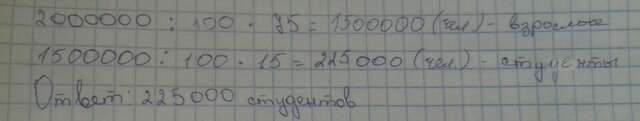 2000000 : 100 · 75 = 1500000 (чел) - взрослые
1500000 : 100 · 15 = 225000 (чел) - студенты
Ответ: 225000 студентов